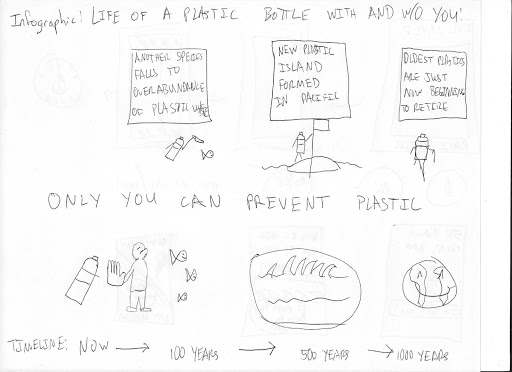 Infographic: LIFE OF A PLASTIC BOTTLE WITH AND W/O YOU!
ANOTHER SPECIES
FALLS TO
OVERABUNDANCE
OF PLASTIC
NEW PLASTIC
ISLAND
FORMED
IN PACIFIC
OLDEST PLASTICS
ARE JUST
NOW BEGINNING
TO RETIRE
ONLY YOU CAN PREVENT PLASTIC
TIMELINE: NOW → 100 YEARS → 500 YEARS → 1000 YEARS